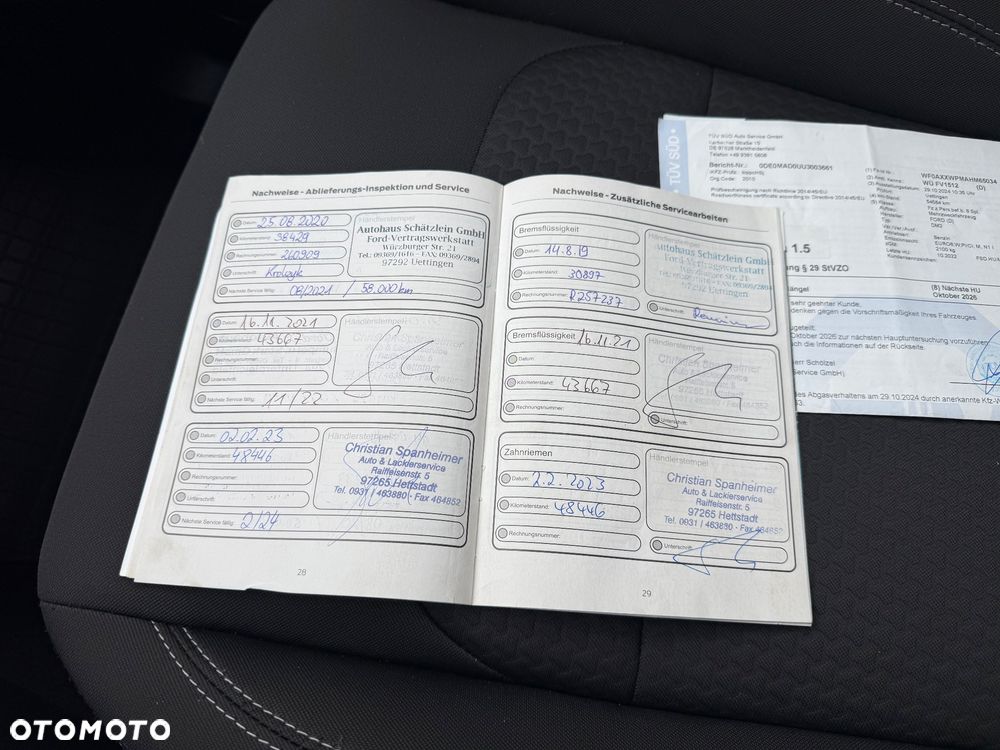 Nachweise - Ablieferungs-Inspektion und Service
Datum: 25.08.2020
Kilometerstand: 38429
Rechnungsnummer: 260909
Unterschrift:
Nächste Service fällig: 08/2021 / 58.000 km
Händlerstempel
Autohaus Schätzlein GmbH
Ford-Vertragswerkstatt
Würzburger Str. 21
Tel.: 09369/1616 - FAX: 09369/2894
97292 Uettingen
Datum: 16.11.2021
Kilometerstand: 43667
Rechnungsnummer:
Unterschrift:
Nächste Service fällig: 11/22
Händlerstempel
Christian Spanheimer
Datum: 02.02.23
Kilometerstand: 48446
Rechnungsnummer:
Unterschrift:
Nächste Service fällig: 2/24
Händlerstempel
Christian Spanheimer
Auto & Lackierservice
Raiffeisenstr. 5
97265 Hettstadt
Tel. 0931 / 463880 - Fax 464852
28
Nachweise - Zusätzliche Servicearbeiten
Bremsflüssigkeit
Datum: 14.8.19
Kilometerstand: 30897
Rechnungsnummer: R257237
Händlerstempel
Autohaus Schätzlein GmbH
Ford-Vertragswerkstatt
Würzburger Str. 21
97292 Uettingen
Unterschrift:
Bremsflüssigkeit 16.11.21
Datum:
Kilometerstand: 43667
Rechnungsnummer:
Händlerstempel
Christian Spanheimer
Auto & Lackierservice
Raiffeisenstr. 5
97265 Hettstadt
Unterschrift:
Zahnriemen
Datum: 2.2.2023
Kilometerstand: 48446
Rechnungsnummer:
Händlerstempel
Christian Spanheimer
Auto & Lackierservice
Raiffeisenstr. 5
97265 Hettstadt
Tel. 0931 / 463880 - Fax 464852
Unterschrift:
29
TÜV SÜD
TÜV SÜD Auto Service GmbH
Bericht-Nr.: 0DE0MAD0UU3003661
WF0AXXWPMAHM65034
WÜ FV1512 (D)
FORD (D)
1.5
§ 29 StVZO
(8) Nächste HU
Oktober 2026
sehr geehrter Kunde,
denken gegen die Vorschriftsmäßigkeit Ihres Fahrzeuges
Oktober 2026 zur nächsten Hauptuntersuchung vorzuführen
die Informationen auf der Rückseite.
Herr Schölzel
Service GmbH)
es Abgasverhaltens am 29.10.2024 durch anerkannte Kfz-W
OTOMOTO